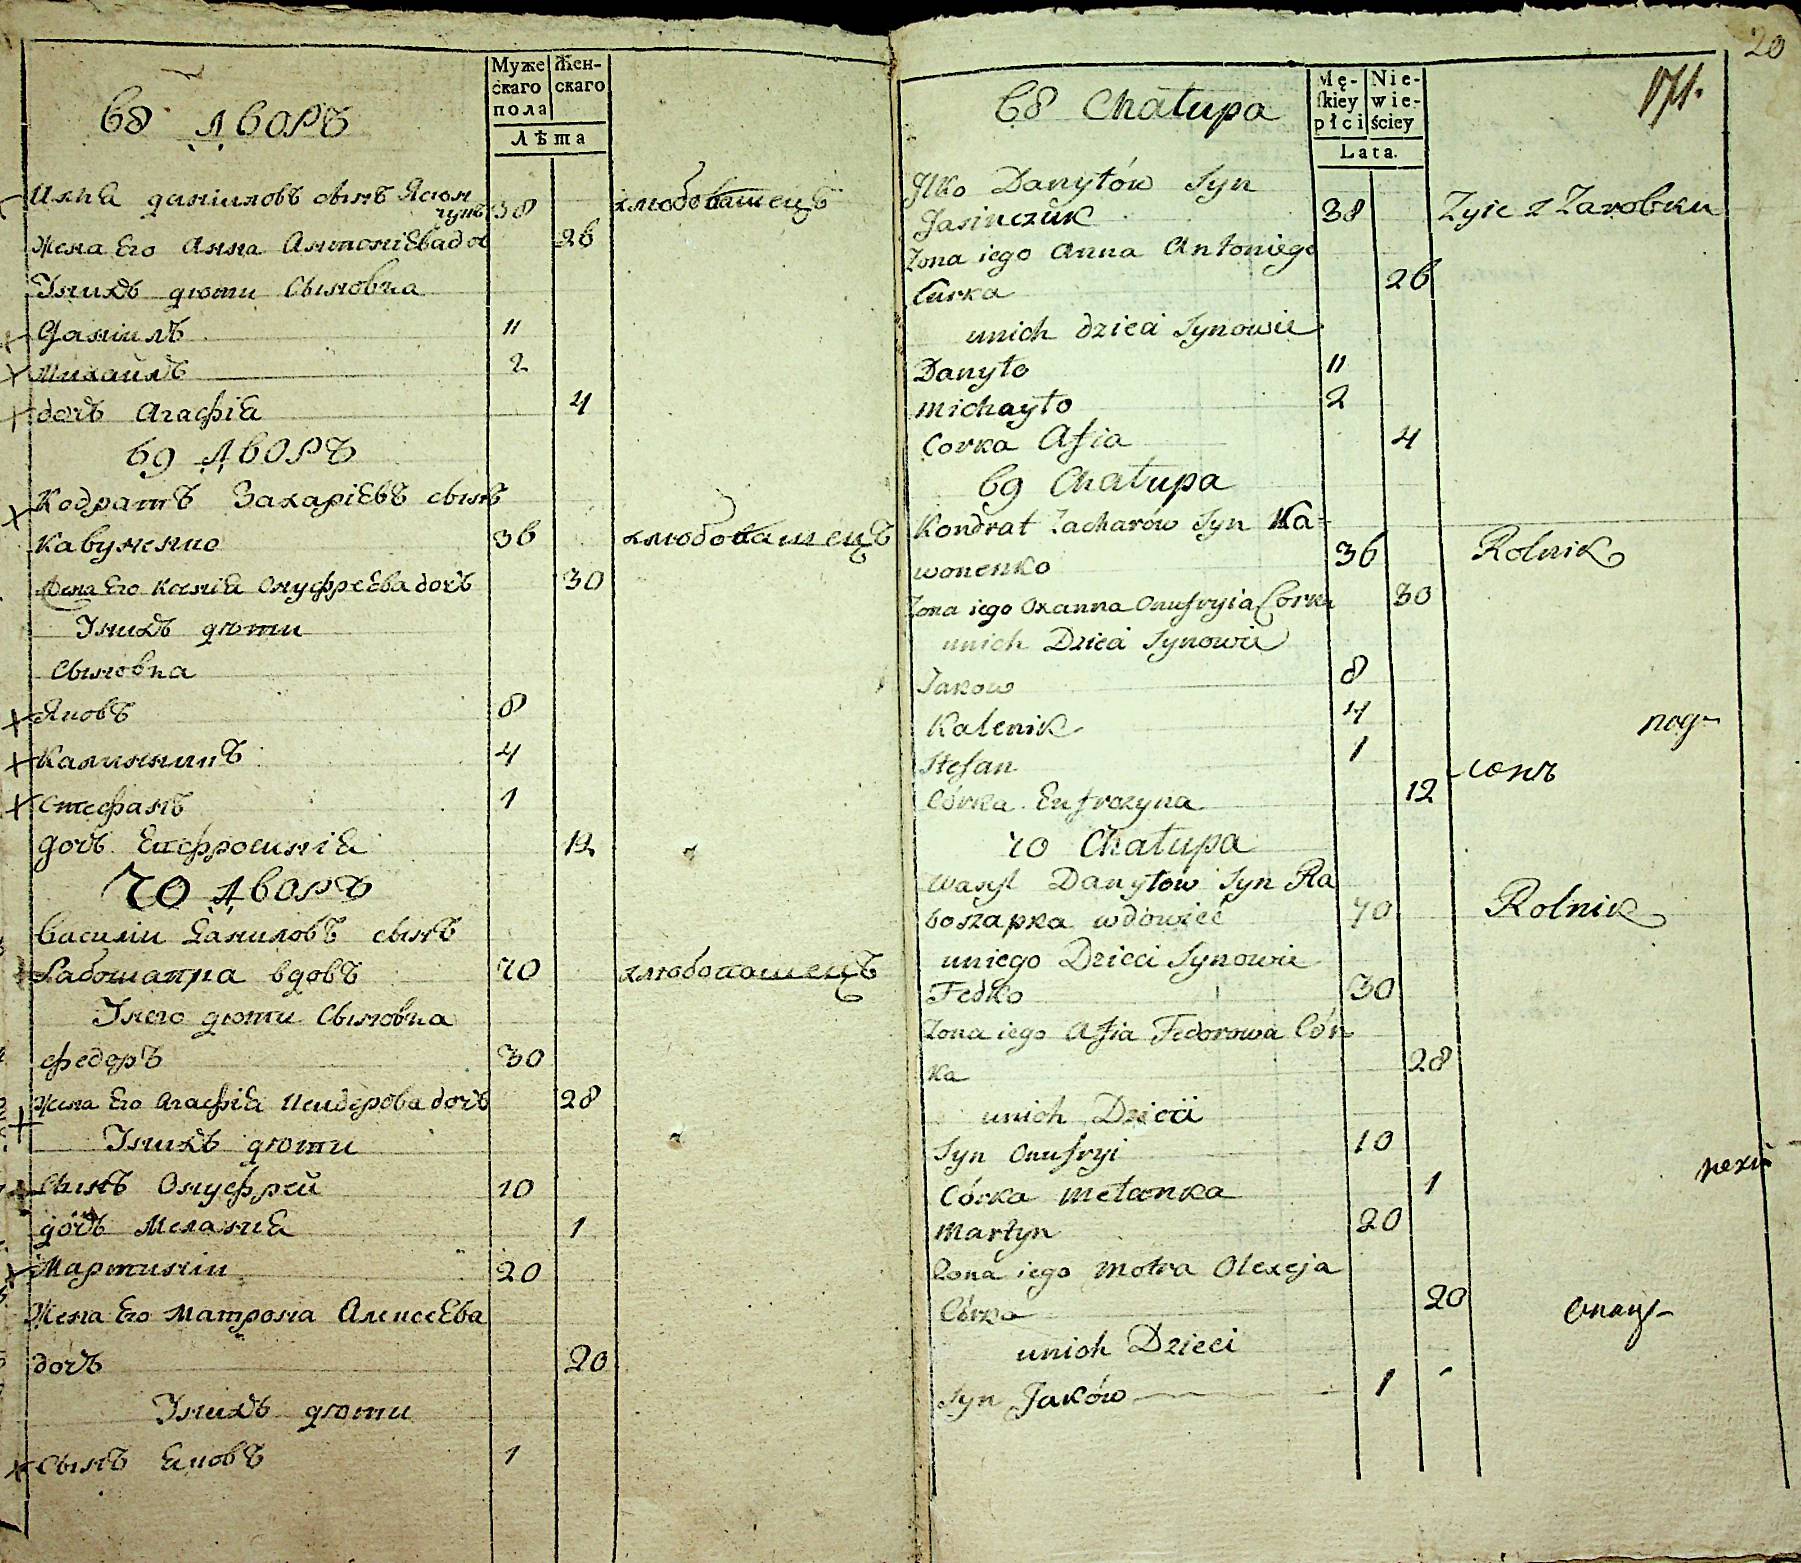 Муже
скаго
пола
Жен-
скаго
Лѣта
68 Дворъ
Илка Даниловъ сынъ Ясюн
чукъ 38 хлебопашецъ
Жена Его Анна Антоніева доч 26
Унихъ дѣти Сыновья
Даніилъ 11
Михаилъ 2
дочь Агафія 4
69 Дворъ
Кодратъ Захаріевъ сынъ
Кавуненко 36 хлебопашецъ
Жена Его Ксенія Онуфреева дочь 30
Унихъ дѣти
Сыновья
Яковъ 8
Калинникъ 4
Стефанъ 1
дочь Ефросинія 12
70 Дворъ
Василии Даниловъ сынъ
Рабошапка вдовъ 70 хлебопашецъ
Унего дѣти Сыновья
Федоръ 30
Жена Его Агафія Исидорова дочь 28
Унихъ дѣти
Сынъ Онуфрей 10
дочь Меланія 1
Мартинии 20
Жена Его Матрона Алексеева
дочь 20
Унихъ дѣти
Сынъ Яковъ 1
20
171.
Mę-
skiey
płci
Nie-
wie-
ściey
Lata.
68 Chałupa
Ilko Danyłów Syn
Jasinczuk 38 Zyie z Zarobku
Zona iego Anna Antoniego
Curka 26
unich dzieci Synowie
Danyło 11
Michayło 2
Corka Afia 4
69 Chałupa
Kondrat Zacharów Syn Ka=
wonenko 36 Rolnik
Zona iego Oxanna Onufryia Corka 30
unich Dzieci Synowie
Jakow 8
Kalenik 4
Stefan 1
Córka Eufrozyna 12
70 Chałupa
Wasyl Danyłow Syn Ra
boszapka wdowiec 70 Rolnik
uniego Dzieci Synowie
Fedko 30
Zona iego Afia Fedorowa Cór
ka 28
unich Dzieci
Syn Onufryi 10
Córka Melanka 1
Martyn 20
Zona iego Motra Olexeja
Córka 20
unich Dzieci
Syn Jaków 1